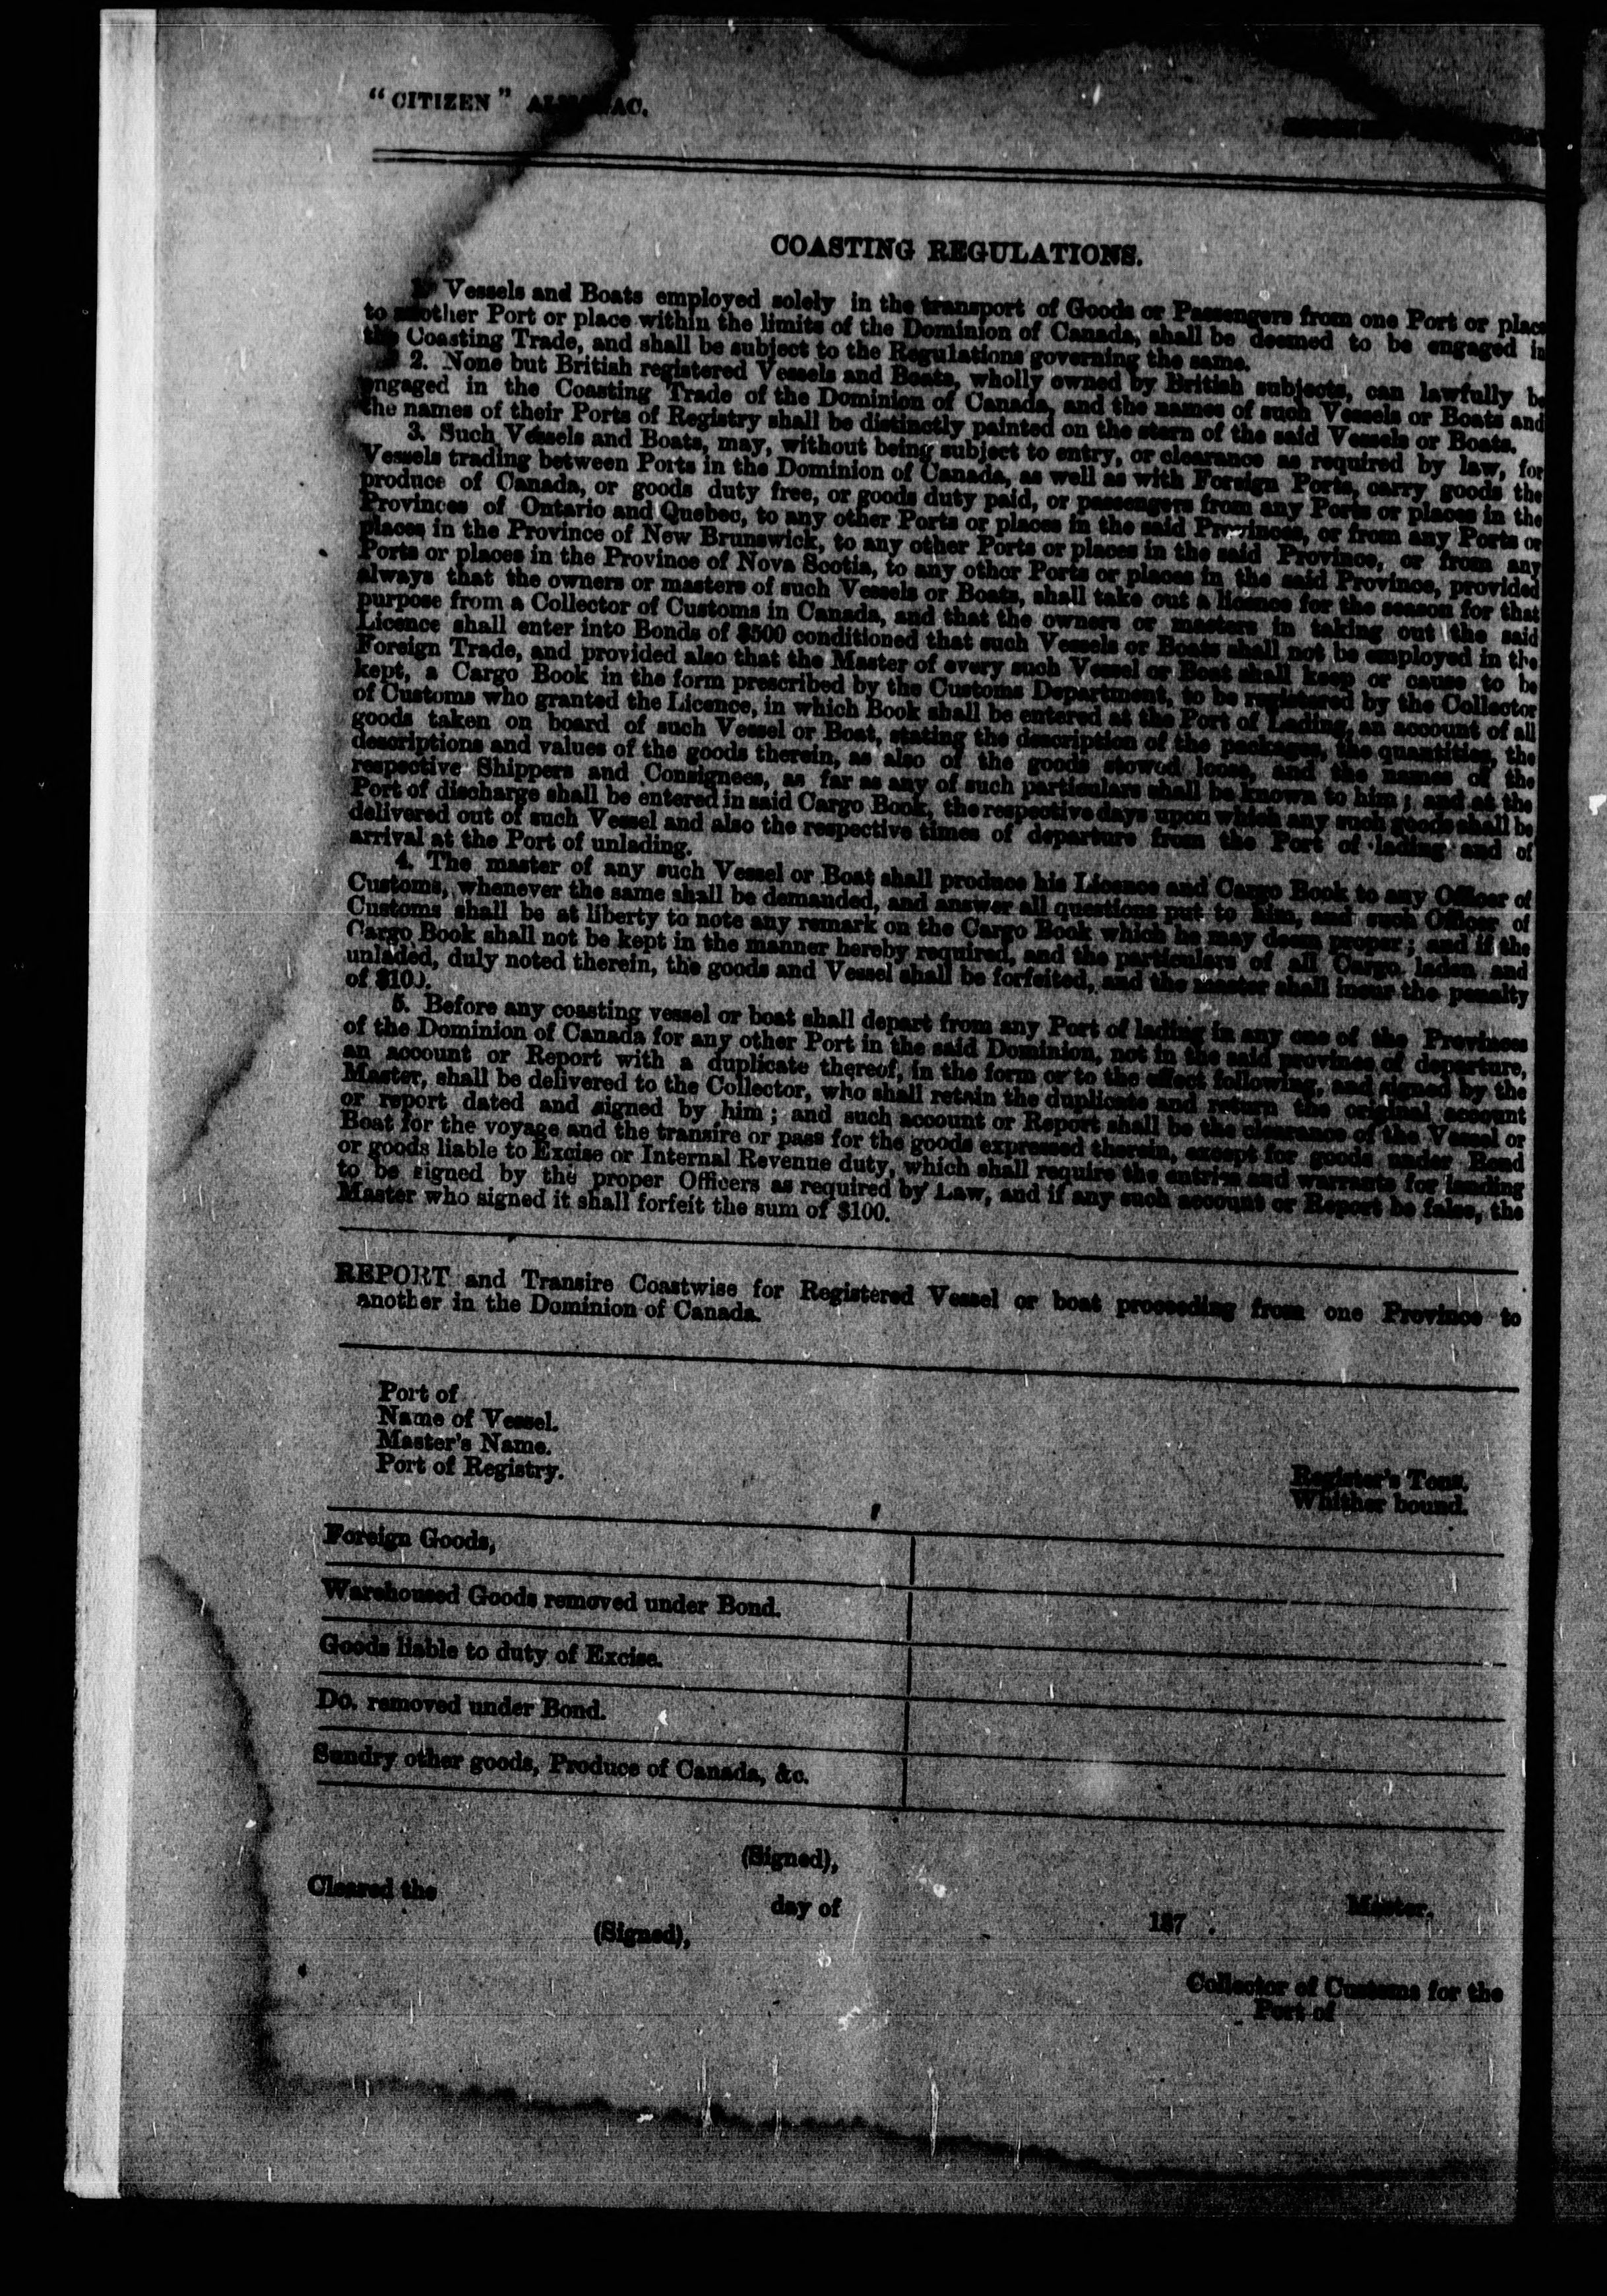 "CITIZEN" ALMANAC.
COASTING REGULATIONS.
1. Vessels and Boats employed solely in the transport of Goods or Passengers from one Port or place
to another Port or place within the limits of the Dominion of Canada, shall be deemed to be engaged in
the Coasting Trade, and shall be subject to the Regulations governing the same.
2. None but British registered Vessels and Boats, wholly owned by British subjects, can lawfully be
engaged in the Coasting Trade of the Dominion of Canada, and the names of such Vessels or Boats and
the names of their Ports of Registry shall be distinctly painted on the stern of the said Vessels or Boats.
3. Such Vessels and Boats, may, without being subject to entry, or clearance as required by law, for
Vessels trading between Ports in the Dominion of Canada, as well as with Foreign Ports, carry goods the
produce of Canada, or goods duty free, or goods duty paid, or passengers from any Ports or places in the
Provinces of Ontario and Quebec, to any other Ports or places in the said Provinces, or from any Ports or
places in the Province of New Brunswick, to any other Ports or places in the said Province, or from any
Ports or places in the Province of Nova Scotia, to any other Ports or places in the said Province, provided
always that the owners or masters of such Vessels or Boats, shall take out a licence for the season for that
purpose from a Collector of Customs in Canada, and that the owners or masters in taking out the said
Licence shall enter into Bonds of $500 conditioned that such Vessels or Boats shall not be employed in the
Foreign Trade, and provided also that the Master of every such Vessel or Boat shall keep or cause to be
kept, a Cargo Book in the form prescribed by the Customs Department, to be registered by the Collector
of Customs who granted the Licence, in which Book shall be entered at the Port of Lading, an account of all
goods taken on board of such Vessel or Boat, stating the description of the packages, the quantities, the
descriptions and values of the goods therein, as also of the goods stowed loose, and the names of the
respective Shippers and Consignees, as far as any of such particulars shall be known to him; and at the
Port of discharge shall be entered in said Cargo Book, the respective days upon which any such goods shall be
delivered out of such Vessel and also the respective times of departure from the Port of lading and of
arrival at the Port of unlading.
4. The master of any such Vessel or Boat shall produce his Licence and Cargo Book to any Officer of
Customs, whenever the same shall be demanded, and answer all questions put to him, and such Officer of
Customs shall be at liberty to note any remark on the Cargo Book which he may deem proper; and if the
Cargo Book shall not be kept in the manner hereby required, and the particulars of all Cargo laden and
unladed, duly noted therein, the goods and Vessel shall be forfeited, and the master shall incur the penalty
of $100.
5. Before any coasting vessel or boat shall depart from any Port of lading in any one of the Provinces
of the Dominion of Canada for any other Port in the said Dominion, not in the said province of departure,
an account or Report with a duplicate thereof, in the form or to the effect following, and signed by the
Master, shall be delivered to the Collector, who shall retain the duplicate and return the original account
or report dated and signed by him; and such account or Report shall be the clearance of the Vessel or
Boat for the voyage and the transire or pass for the goods expressed therein, except for goods under Bond
or goods liable to Excise or Internal Revenue duty, which shall require the entries and warrants for landing
to be signed by the proper Officers as required by Law, and if any such account or Report be false, the
Master who signed it shall forfeit the sum of $100.
REPORT and Transire Coastwise for Registered Vessel or boat proceeding from one Province to
another in the Dominion of Canada.
Port of
Name of Vessel.
Master's Name.
Port of Registry.
Register's Tons.
Whither bound.
Foreign Goods,
Warehoused Goods removed under Bond.
Goods liable to duty of Excise.
Do. removed under Bond.
Sundry other goods, Produce of Canada, &c.
(Signed),
Master.
Cleared the day of 187 .
(Signed),
Collector of Customs for the
Port of